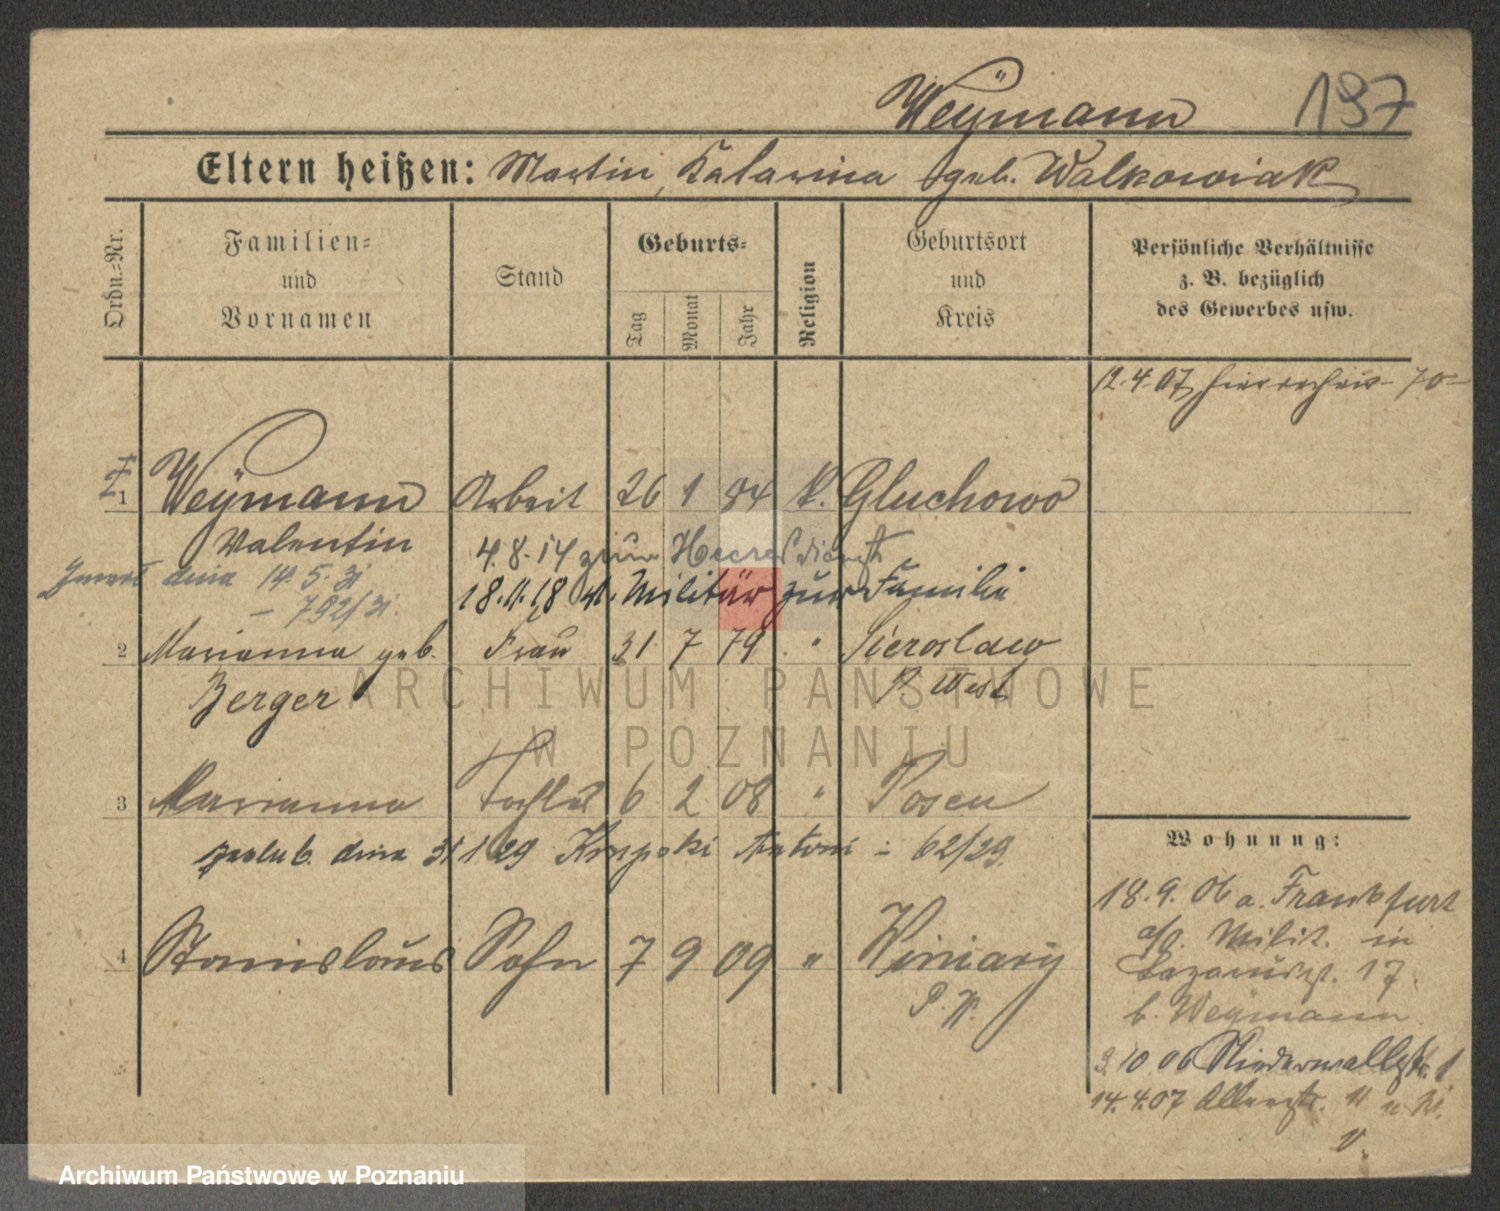 Weÿmann 197
Eltern heißen: Martin, Katarina geb. Walkowiak
Ordn.-Nr.
Familien-
und
Vornamen
Stand
Geburts-
Tag
Monat
Jahr
Religion
Geburtsort
und
Kreis
Persönliche Verhältnisse
z. B. bezüglich
des Gewerbes usw.
12.4.07
1 Weÿmann Arbeit 26 1 84 k. Gluchowo
Valentin 4.8.14 zum Heeresdienst
dnia 14.5.31 18.11.18 v. Militär zur Familie
– 792/31.
2 Marianna geb. Frau 31 7 79 " Sieroslaw
Berger P. West
3 Marianna Tochter 6 2 08 " Posen
zaślub. dnia 31 1 29 Antoni - 62/29.
4 Stanislaus Sohn 7 9 09 " Winiary
P. W.
Wohnung:
18.9.06 a. Frankfurt
a/O. Milit. in
Lazarusstr. 17.
b. Weymann
3.10.06 Niederwallstr. 1
14.4.07
v.
ARCHIWUM PAŃSTWOWE
W POZNANIU
Archiwum Państwowe w Poznaniu